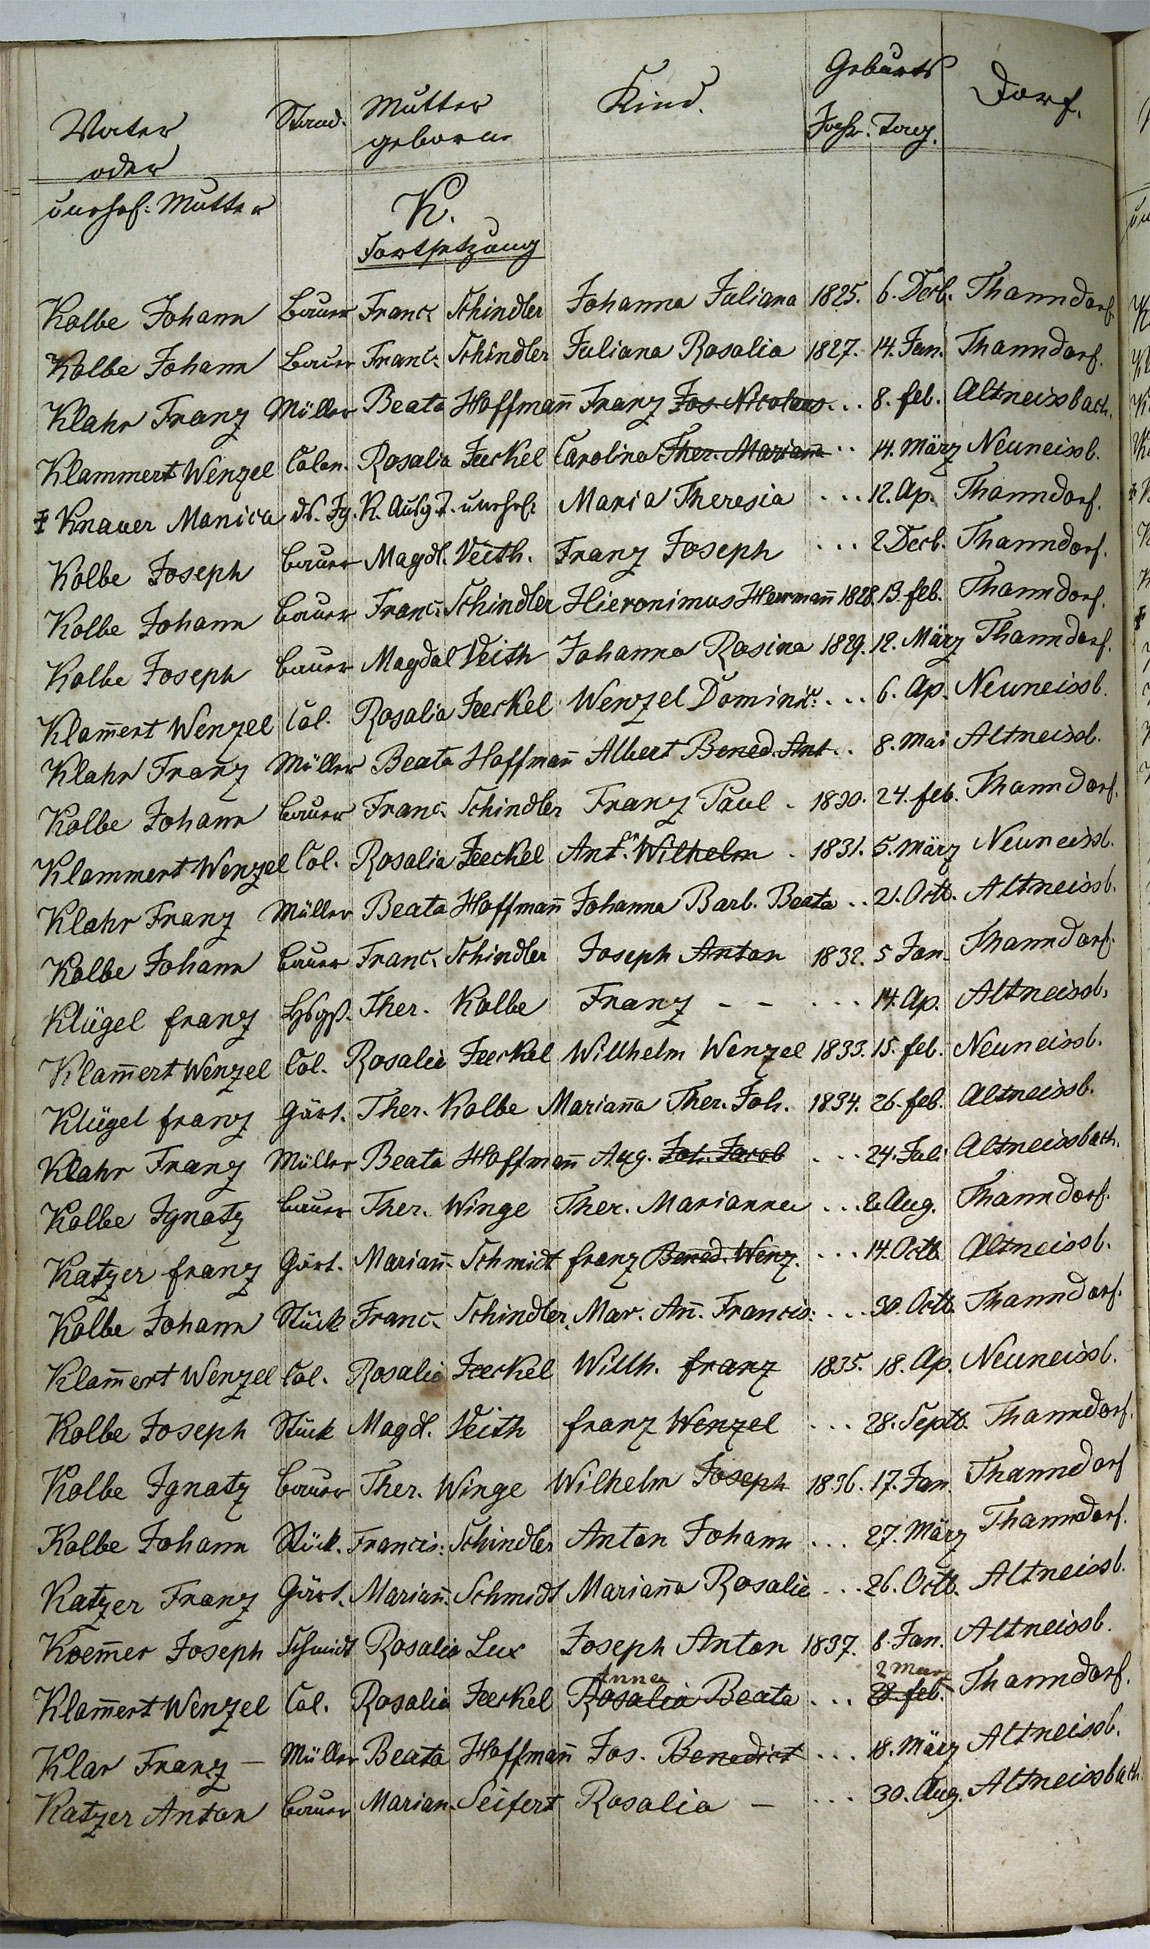 Vater Stand. Mutter Kind. Geburts Dorf.
oder geborne Jahr. Tag.
unehel: Mutter
K.
Fortsetzung
Kolbe Johann Bauer Franc. Schindler Johanna Juliana 1825. 6. Decb. Thanndorf.
Kolbe Johann Bauer Franc. Schindler Juliana Rosalia 1827. 14. Jan. Thanndorf.
Klahr Franz Müller Beata Hoffmañ Franz Jos. Nicolaus ... 8. feb. Altneissbach.
Klammert Wenzel Colon. Rosalia Jeckel Carolina Ther. Mariañ ... 14. März Neuneissb.
Knauer Monica K. unehel: Maria Theresia ... 12. Ap. Thanndorf.
Kolbe Joseph Bauer Magdl. Veith. Franz Joseph ... 2 Decb. Thanndorf.
Kolbe Johann Bauer Franc. Schindler Hieronimus Hermañ 1828. 13. feb. Thanndorf.
Kolbe Joseph Bauer Magdal Veith Johanna Rosina 1829. 12. März Thanndorf.
Klam̃ert Wenzel Col. Rosalia Jeckel Wenzel Dominic: ... 6. Ap. Neuneissb.
Klahr Franz Müller Beata Hoffmañ Albert Bened. Ant. .. 8. Mai Altneissb.
Kolbe Johann Bauer Franc. Schindler Franz Paul . 1830. 24. feb. Thanndorf.
Klammert Wenzel Col. Rosalia Jeckel Ant. Wilhelm . 1831. 5. März Neuneissb.
Klahr Franz Müller Beata Hoffmañ Johanna Barb. Beata .. 21. Octb. Altneissb.
Kolbe Johann Bauer Franc. Schindler Joseph Anton 1832. 5 Jan. Thanndorf.
Klügel franz Ther. Kolbe Franz - - ... 14. Ap. Altneissb.
Klam̃ert Wenzel Col. Rosalia Jeckel Willhelm Wenzel 1833. 15. feb. Neuneissb.
Klügel franz Gärt. Ther. Kolbe Mariaña Ther. Joh. 1834. 26. feb. Altneissb.
Klahr Franz Müller Beata Hoffmañ Aug. Joh. Jacob ... 24. Juli Altneissbach.
Kolbe Ignatz Bauer Ther. Winge Ther. Marianna ... 2. Aug. Thanndorf.
Katzer franz Gärt. Mariañ Schmidt franz Bened. Wenz. ... 14. Octb. Altneissb.
Kolbe Johann Stück Franc. Schindler Mar. Añ. Francis: ... 30. Octb. Thanndorf.
Klam̃ert Wenzel Col. Rosalia Jeckel Willh. franz 1835. 18. Ap. Neuneissb.
Kolbe Joseph Stück Magdl. Veith franz Wenzel ... 28. Septb. Thanndorf.
Kolbe Ignatz Bauer Ther. Winge Wilhelm Joseph 1836. 17. Jan. Thanndorf
Kolbe Johann Stück. Francis: Schindler Anton Johann ... 27. März Thanndorf.
Katzer Franz Gärt. Mariañ. Schmidt Mariaña Rosalie ... 26. Octb. Altneissb.
Koem̃er Joseph Schmidt Rosalia Lux Joseph Anton 1837. 8. Jan. Altneissb.
Anna 2 März
Klam̃ert Wenzel Col. Rosalia Jeckel Rosalia Beata ... 28. feb. Thanndorf.
Klar Franz - Müller Beata Hoffmañ Jos. Benedict ... 18. März Altneissb.
Katzer Anton Bauer Marian. Seifert Rosalia - ... 30. Aug. Altneissbach